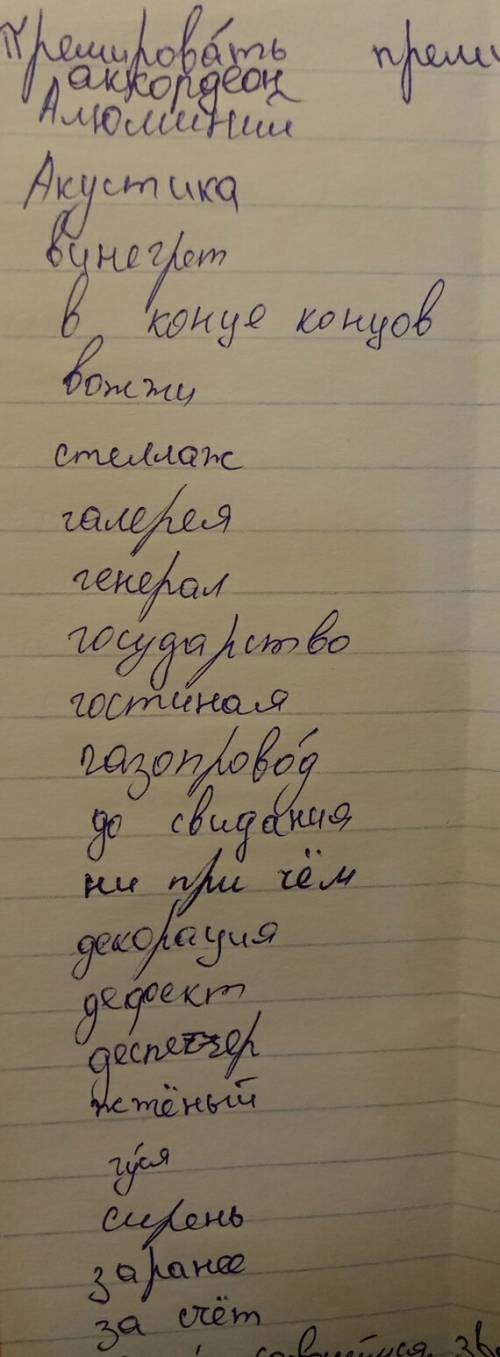 Премирова́ть
аккордеон
Алюминий
Акустика
винегрет
в конце концов
вожжи
стеллаж
галерея
генерал
государство
гостиная
газопрово́д
до свидания
ни при чём
декорация
дефект
диспетчер
жжёный
гуся
сирень
заранее
за счёт